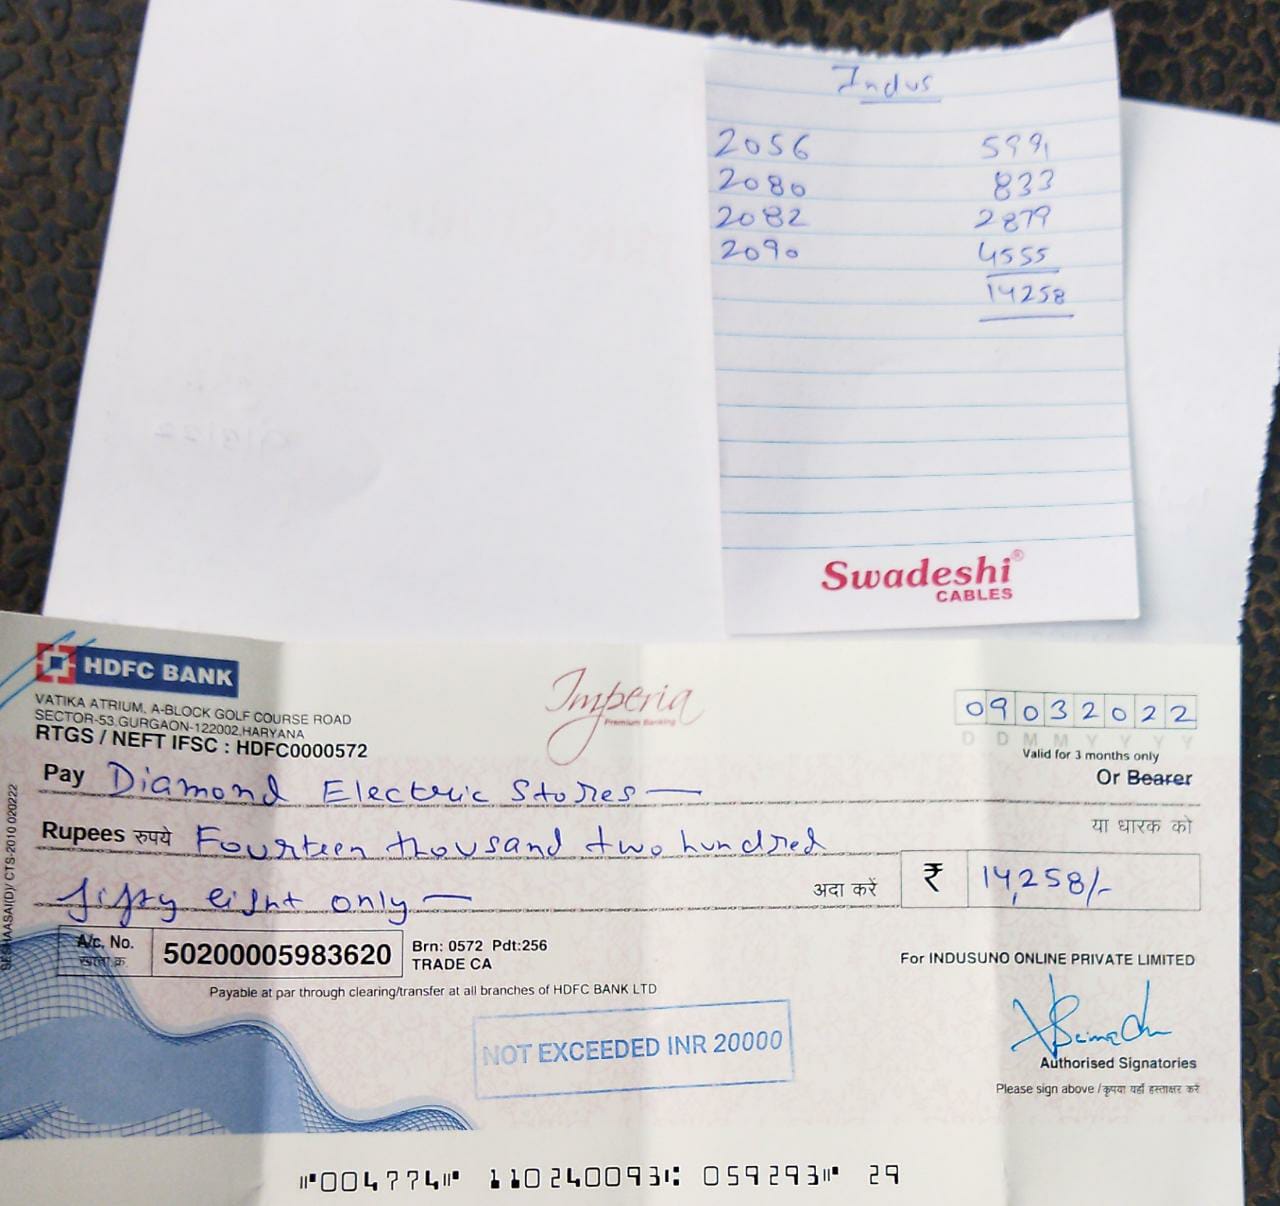 Indus
2056 5991
2080 833
2082 2879
2090 4555
14258
Swadeshi®
CABLES
HDFC BANK
VATIKA ATRIUM, A-BLOCK GOLF COURSE ROAD
SECTOR-53,GURGAON-122002,HARYANA
RTGS / NEFT IFSC : HDFC0000572
Imperia
Premium Banking
09032022
D D M M Y Y Y Y
Valid for 3 months only
Pay Diamond Electric Stores
Or Bearer
या धारक को
Rupees रुपये Fourteen thousand two hundred
fifty eight only
अदा करें ₹ 14,258/-
A/c. No. 50200005983620 Brn: 0572 Pdt:256
खाता क्र. TRADE CA
For INDUSUNO ONLINE PRIVATE LIMITED
Payable at par through clearing/transfer at all branches of HDFC BANK LTD
NOT EXCEEDED INR 20000
Authorised Signatories
Please sign above / कृपया यहाँ हस्ताक्षर करें
⑈004774⑈ 110240093⑆ 059293⑈ 29
CTS-2010 020222